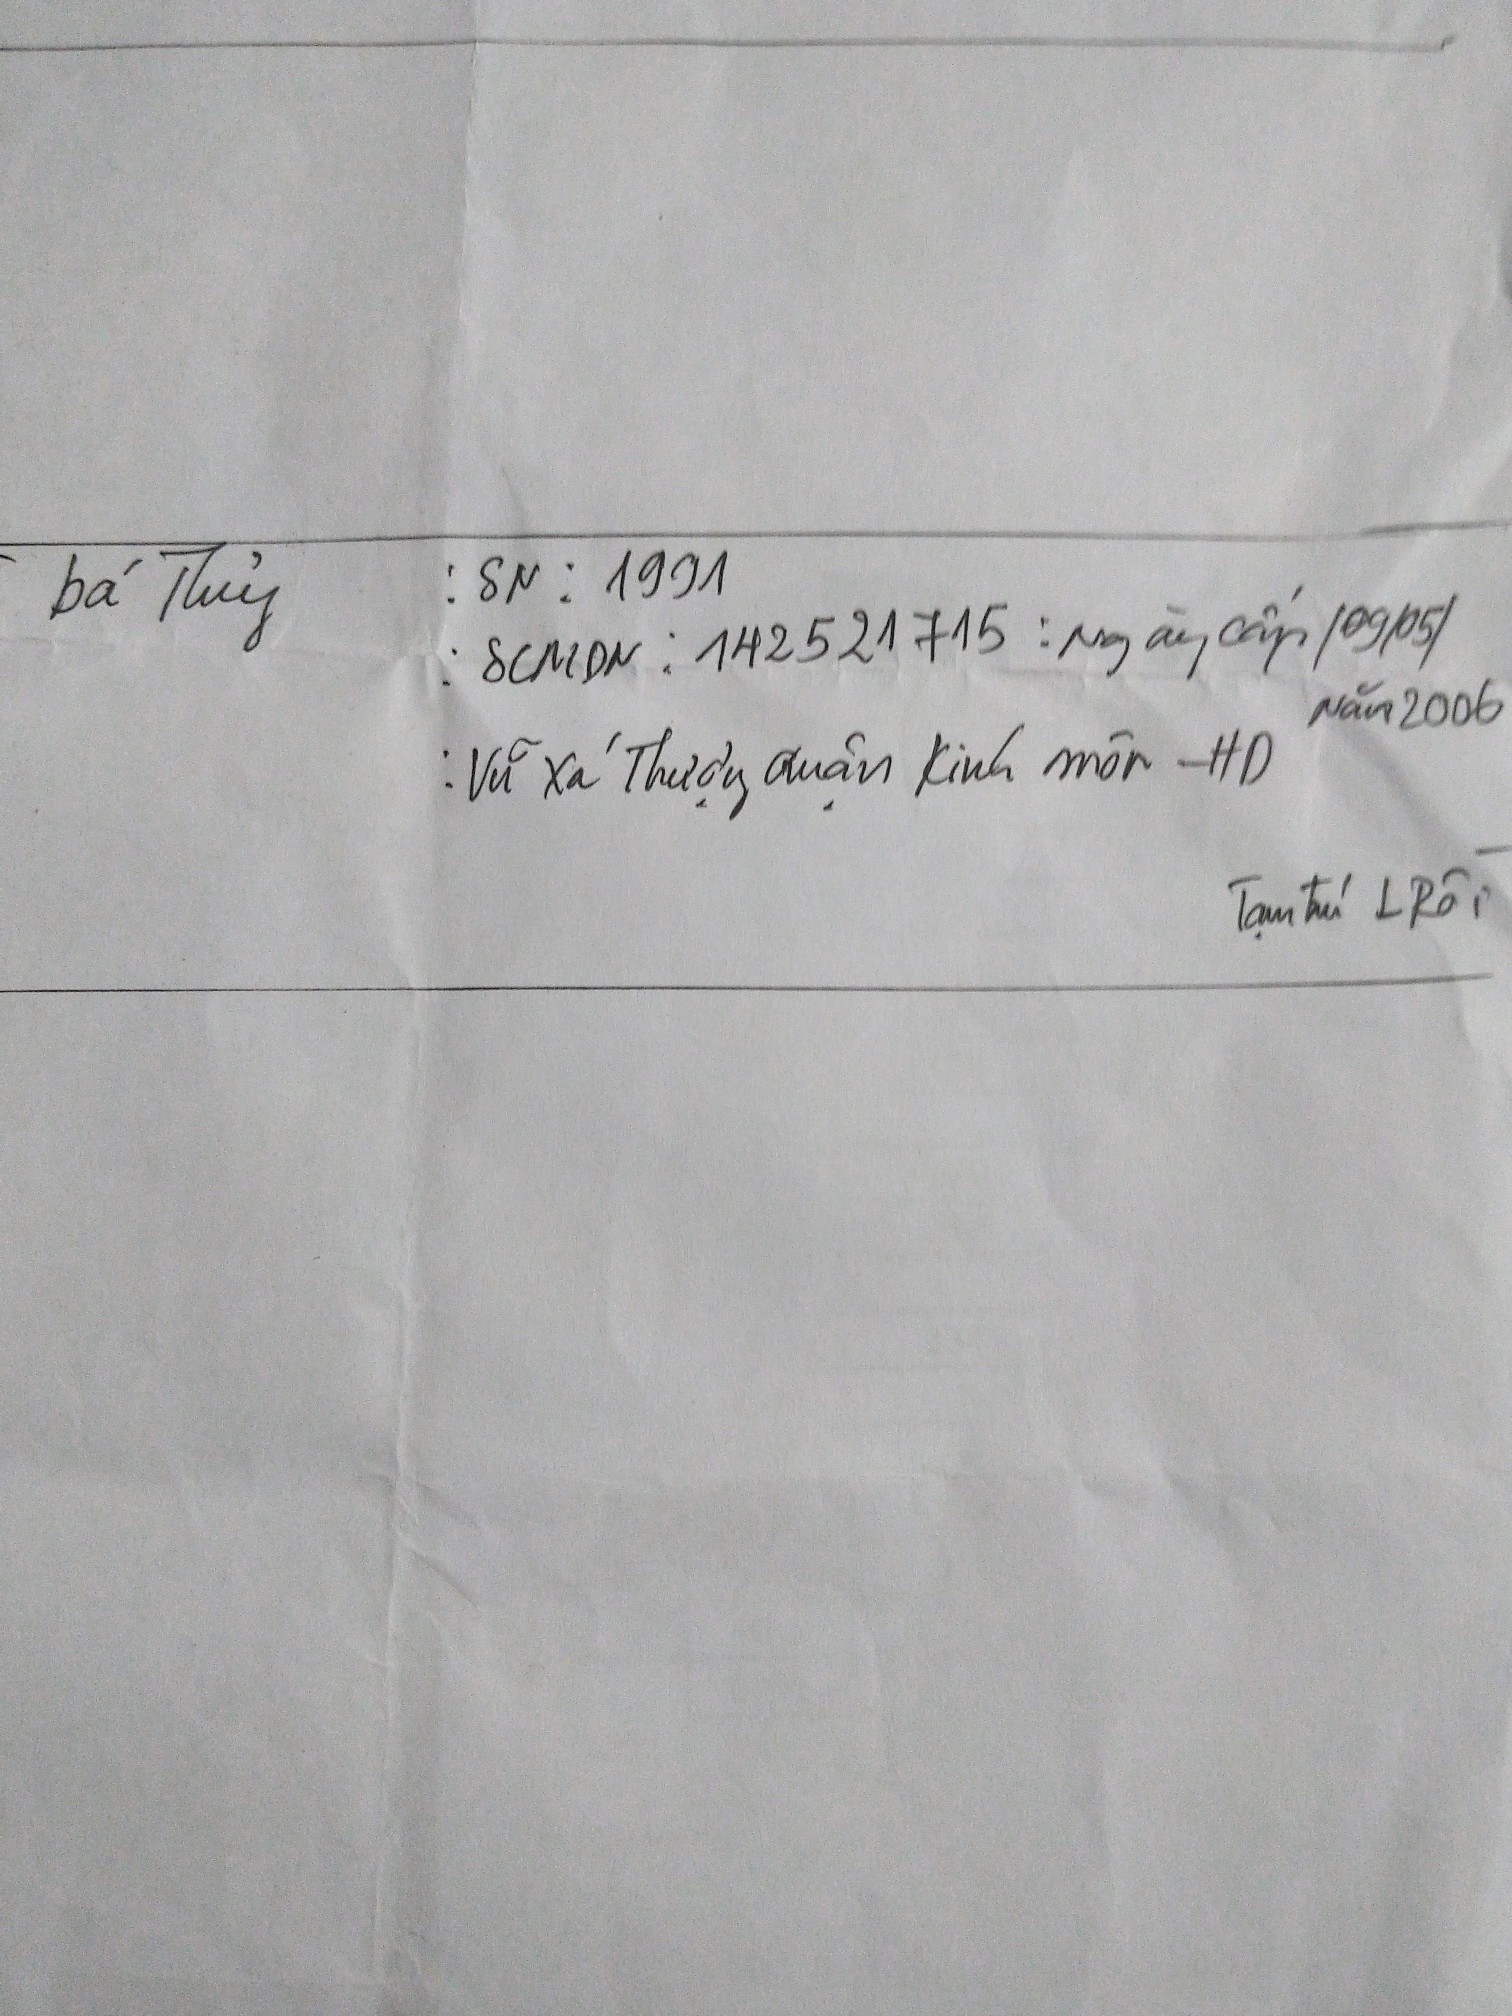 bá Thủy : SN : 1991
: SCMDN : 142521715 : Ngày cấp /09/05/
năm 2006
: Vũ Xá Thượng Quận Kinh môn - HD
Tạm trú L Rồi